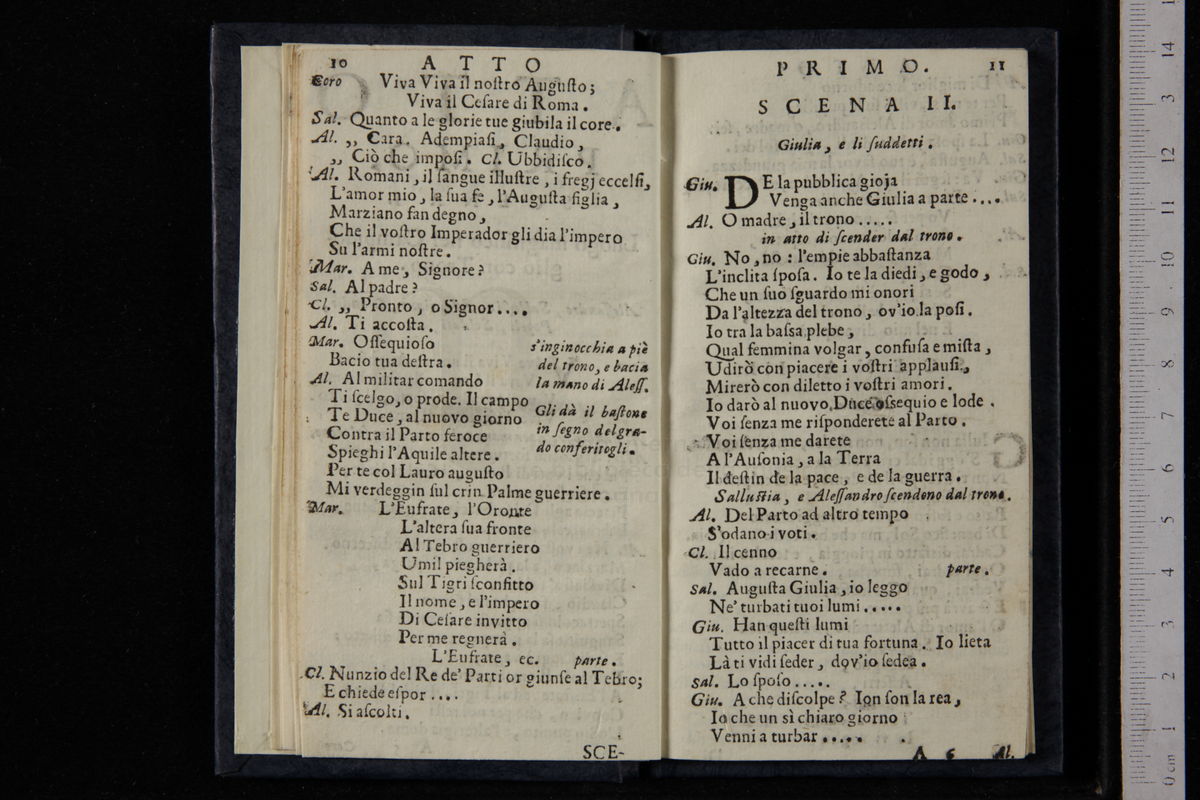 10 ATTO
Coro Viva Viva il noſtro Auguſto;
Viva il Ceſare di Roma.
Sal. Quanto a le glorie tue giubila il core.
Al. ,, Cara. Adempiaſi, Claudio,
,, Ciò che impoſi. Cl. Ubbidiſco.
Al. Romani, il ſangue illuſtre, i fregj eccelſi,
L'amor mio, la ſua fe, l'Auguſta figlia,
Marziano fan degno,
Che il voſtro Imperador gli dia l'impero
Su l'armi noſtre.
Mar. A me, Signore?
Sal. Al padre?
Cl. ,, Pronto, o Signor....
Al. Ti accoſta.
Mar. Oſſequioſo
Bacio tua deſtra.
s'inginocchia a piè
del trono, e bacia
la mano di Aleſſ.
Al. Al militar comando
Ti ſcelgo, o prode. Il campo
Te Duce, al nuovo giorno
Contra il Parto feroce
Spieghi l'Aquile altere.
Gli dà il baſtone
in ſegno del gra-
do conferitogli.
Per te col Lauro auguſto
Mi verdeggin ſul crin Palme guerriere.
Mar. L'Eufrate, l'Oronte
L'altera ſua fronte
Al Tebro guerriero
Umil piegherà.
Sul Tigri ſconfitto
Il nome, e l'impero
Di Ceſare invitto
Per me regnerà.
L'Eufrate, ec. parte.
Cl. Nunzio del Re de' Parti or giunſe al Tebro;
E chiede eſpor....
Al. Si aſcolti.
SCE-
PRIMO. 11
SCENA II.
Giulia, e li ſuddetti.
Giu. DE la pubblica gioja
Venga anche Giulia a parte....
Al. O madre, il trono.....
in atto di ſcender dal trono.
Giu. No, no: l'empie abbaſtanza
L'inclita ſpoſa. Io te la diedi, e godo,
Che un ſuo ſguardo mi onori
Da l'altezza del trono, ov'io la poſi.
Io tra la baſsa plebe,
Qual femmina volgar, confuſa e miſta,
Udirò con piacere i voſtri applauſi.,
Mirerò con diletto i voſtri amori.
Io darò al nuovo Duce oſsequio e lode.
Voi ſenza me riſponderete al Parto.
Voi ſenza me darete
A l'Auſonia, a la Terra
Il deſtin de la pace, e de la guerra.
Salluſtia, e Aleſſandro ſcendono dal trono.
Al. Del Parto ad altro tempo
S'odano i voti.
Cl. Il cenno
Vado a recarne. parte.
Sal. Auguſta Giulia, io leggo
Ne' turbati tuoi lumi.....
Giu. Han queſti lumi
Tutto il piacer di tua fortuna. Io lieta
Là ti vidi ſeder, dov'io ſedea.
Sal. Lo ſpoſo.....
Giu. A che diſcolpe? Ion ſon la rea,
Io che un sì chiaro giorno
Venni a turbar.....
A 6 Al.